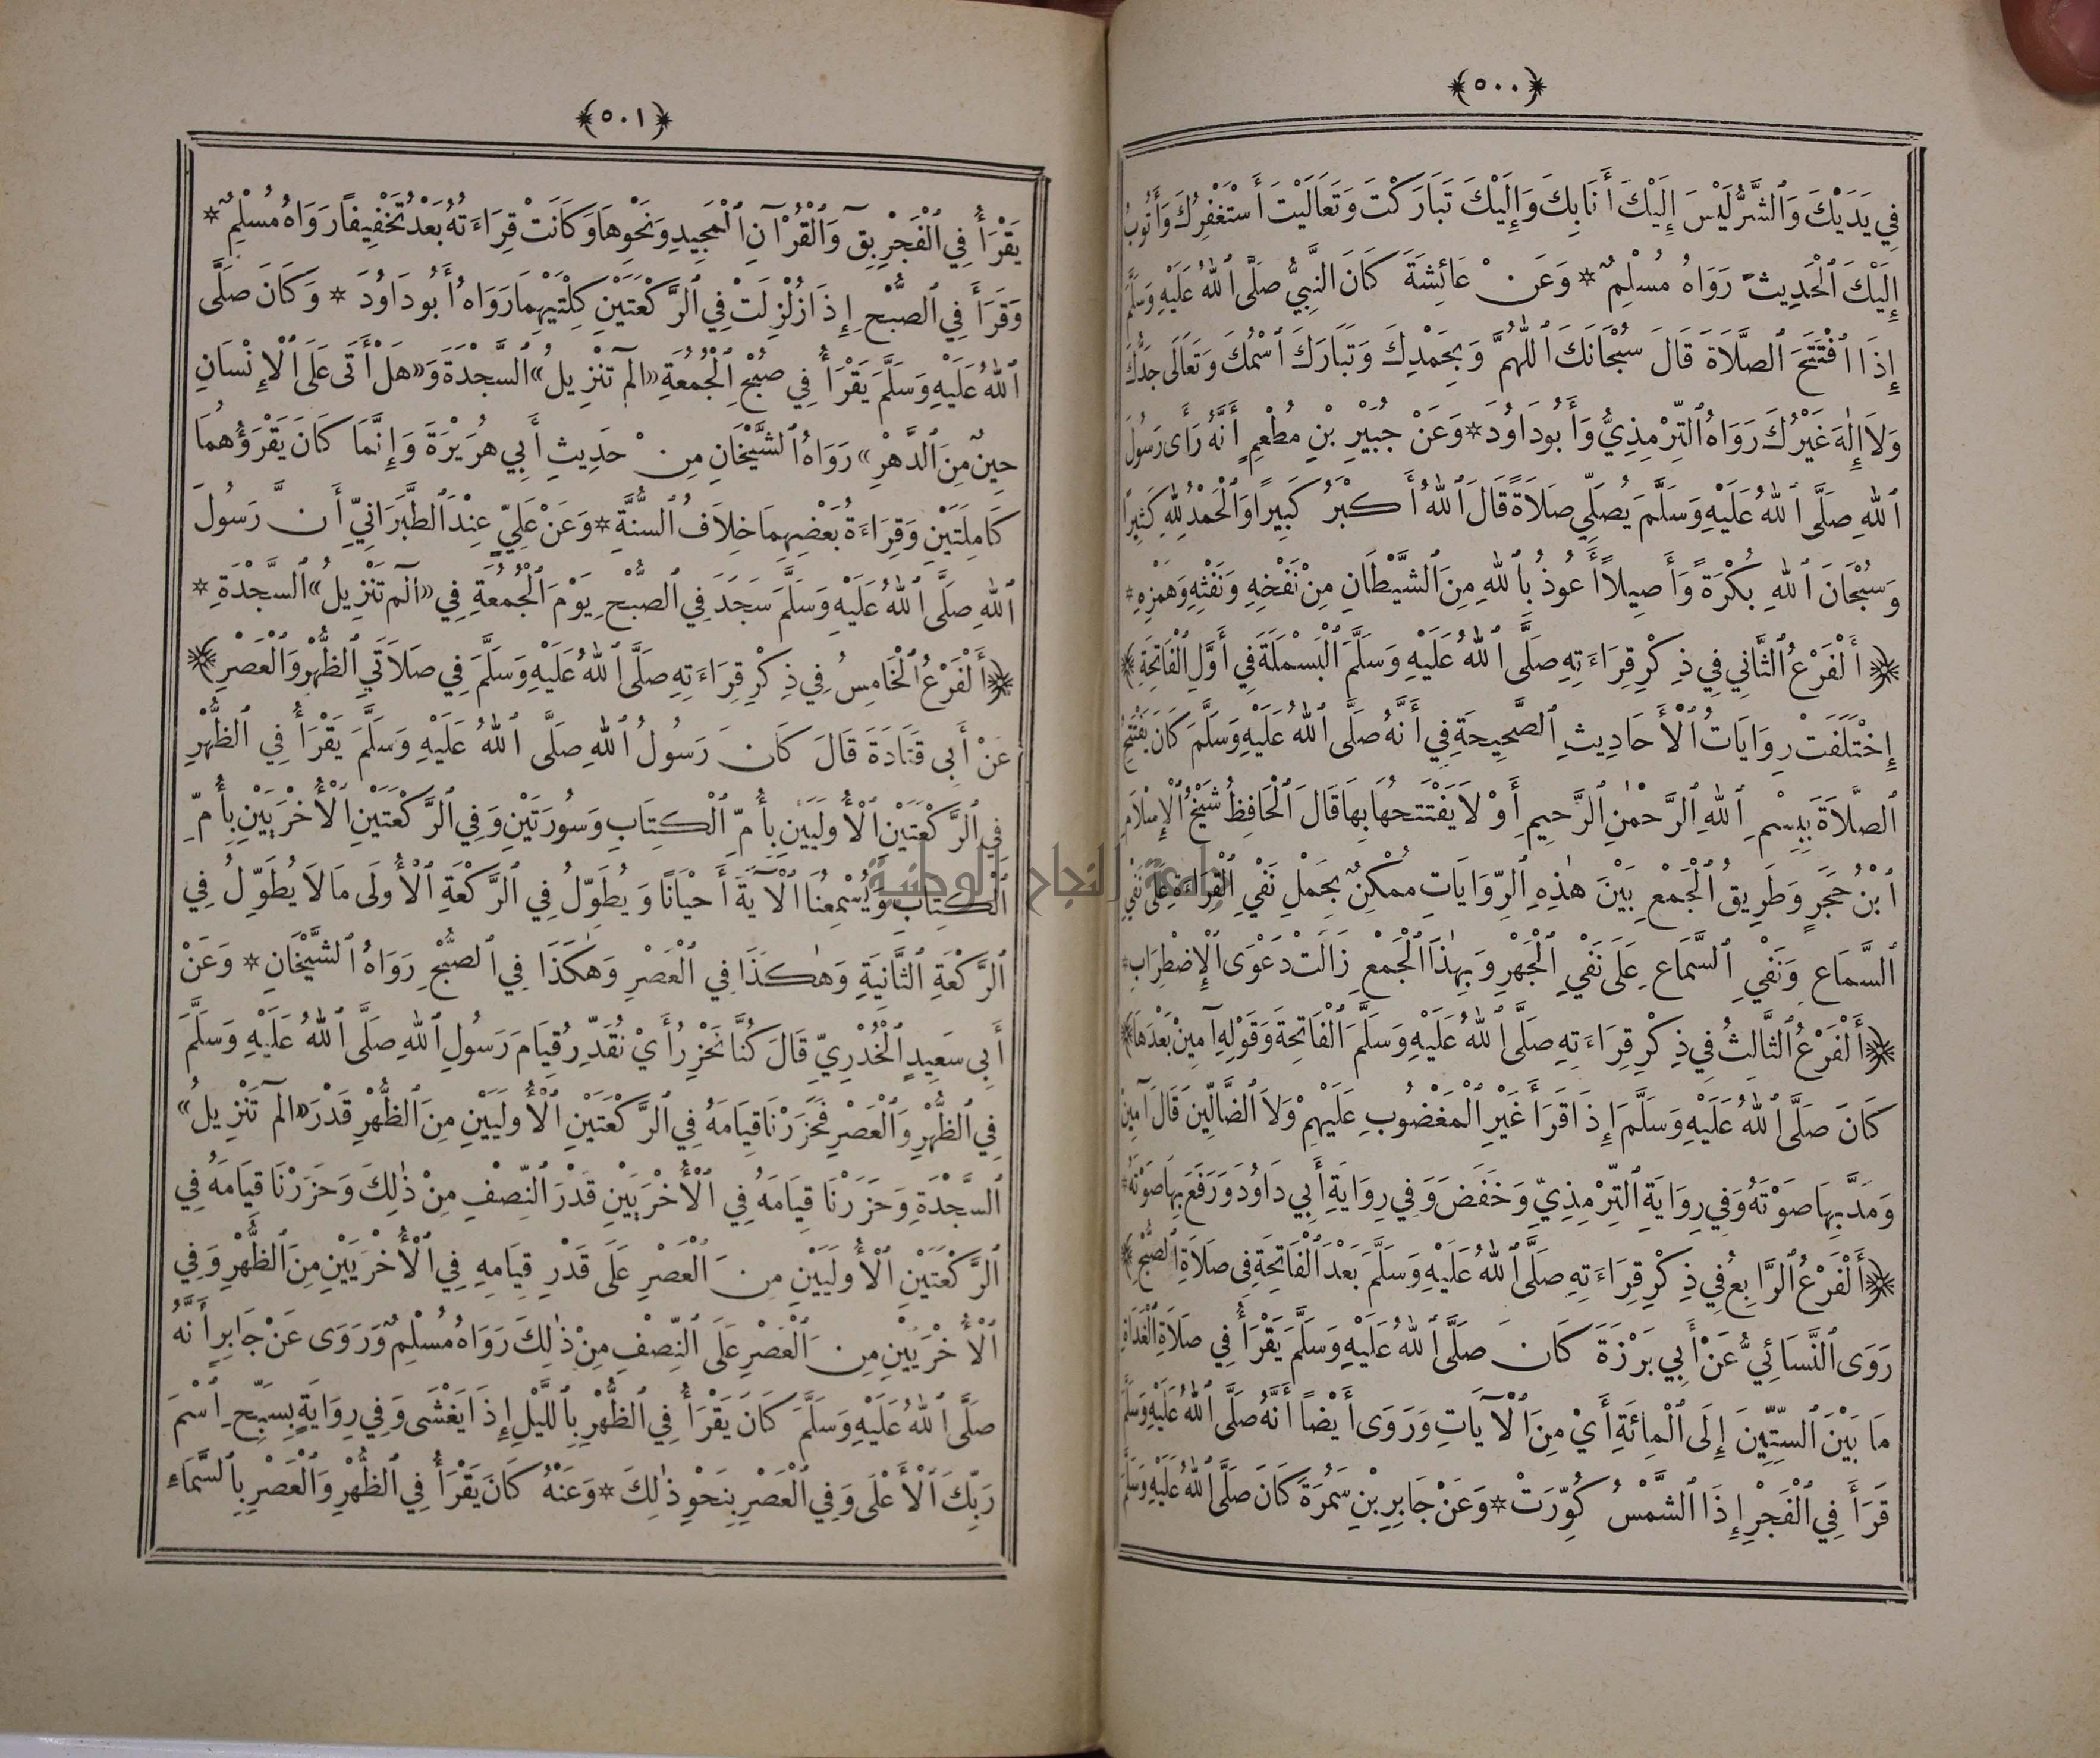 ﴿٥٠٠﴾
فِي يَدَيْكَ وَٱلشَّرُّ لَيْسَ إِلَيْكَ أَنَا بِكَ وَإِلَيْكَ تَبَارَكْتَ وَتَعَالَيْتَ أَسْتَغْفِرُكَ وَأَتُوبُ
إِلَيْكَ ٱلْحَدِيثَ رَوَاهُ مُسْلِمٌ * وَعَنْ عَائِشَةَ كَانَ النَّبِيُّ صَلَّى ٱللهُ عَلَيْهِ وَسَلَّمَ
إِذَا ٱفْتَتَحَ ٱلصَّلَاةَ قَالَ سُبْحَانَكَ ٱللّٰهُمَّ وَبِحَمْدِكَ وَتَبَارَكَ ٱسْمُكَ وَتَعَالَى جَدُّكَ
وَلَا إِلٰهَ غَيْرُكَ رَوَاهُ ٱلتِّرْمِذِيُّ وَأَبُودَاوُدَ * وَعَنْ جُبَيْرِ بْنِ مُطْعِمٍ أَنَّهُ رَأَى رَسُولَ
ٱللهِ صَلَّى ٱللهُ عَلَيْهِ وَسَلَّمَ يُصَلِّي صَلَاةً قَالَ ٱللهُ أَكْبَرُ كَبِيرًا وَٱلْحَمْدُ لِلهِ كَثِيرًا
وَسُبْحَانَ ٱللهِ بُكْرَةً وَأَصِيلاً أَعُوذُ بِٱللهِ مِنَ ٱلشَّيْطَانِ مِنْ نَفْخِهِ وَنَفْثِهِ وَهَمْزِهِ *
﴿أَلْفَرْعُ ٱلثَّانِي فِي ذِكْرِ قِرَاءَتِهِ صَلَّى ٱللهُ عَلَيْهِ وَسَلَّمَ ٱلْبَسْمَلَةَ فِي أَوَّلِ ٱلْفَاتِحَةِ﴾
إِخْتَلَفَتْ رِوَايَاتُ ٱلْأَحَادِيثِ ٱلصَّحِيحَةِ فِي أَنَّهُ صَلَّى ٱللهُ عَلَيْهِ وَسَلَّمَ كَانَ يَفْتَتِحُ
ٱلصَّلَاةَ بِبِسْمِ ٱللهِ ٱلرَّحْمٰنِ ٱلرَّحِيمِ أَوْ لَا يَفْتَتِحُهَا بِهَا قَالَ ٱلْحَافِظُ شَيْخُ ٱلْإِسْلَامِ
ٱبْنُ حَجَرٍ وَطَرِيقُ ٱلْجَمْعِ بَيْنَ هٰذِهِ ٱلرِّوَايَاتِ مُمْكِنٌ بِحَمْلِ نَفْيِ ٱلْقِرَاءَةِ عَلَى نَفْيِ
ٱلسَّمَاعِ وَنَفْيِ ٱلسَّمَاعِ عَلَى نَفْيِ ٱلْجَهْرِ وَبِهٰذَا ٱلْجَمْعِ زَالَتْ دَعْوَى ٱلْإِضْطِرَابِ *
﴿أَلْفَرْعُ ٱلثَّالِثُ فِي ذِكْرِ قِرَاءَتِهِ صَلَّى ٱللهُ عَلَيْهِ وَسَلَّمَ ٱلْفَاتِحَةَ وَقَوْلِهِ آمِينْ بَعْدَهَا﴾
كَانَ صَلَّى ٱللهُ عَلَيْهِ وَسَلَّمَ إِذَا قَرَأَ غَيْرِ ٱلْمَغْضُوبِ عَلَيْهِمْ وَلَا ٱلضَّالِّينَ قَالَ آمِينْ
وَمَدَّ بِهَا صَوْتَهُ وَفِي رِوَايَةِ ٱلتِّرْمِذِيِّ وَخَفَضَ وَفِي رِوَايَةِ أَبِي دَاوُدَ وَرَفَعَ بِهَا صَوْتَهُ *
﴿أَلْفَرْعُ ٱلرَّابِعُ فِي ذِكْرِ قِرَاءَتِهِ صَلَّى ٱللهُ عَلَيْهِ وَسَلَّمَ بَعْدَ ٱلْفَاتِحَةِ فِي صَلَاةِ ٱلصُّبْحِ﴾
رَوَى ٱلنَّسَائِيُّ عَنْ أَبِي بَرْزَةَ كَانَ صَلَّى ٱللهُ عَلَيْهِ وَسَلَّمَ يَقْرَأُ فِي صَلَاةِ ٱلْغَدَاةِ
مَا بَيْنَ ٱلسِّتِّينَ إِلَى ٱلْمِائَةِ أَيْ مِنَ ٱلْآيَاتِ وَرَوَى أَيْضًا أَنَّهُ صَلَّى ٱللهُ عَلَيْهِ وَسَلَّمَ
قَرَأَ فِي ٱلْفَجْرِ إِذَا ٱلشَّمْسُ كُوِّرَتْ * وَعَنْ جَابِرِ بْنِ سَمُرَةَ كَانَ صَلَّى ٱللهُ عَلَيْهِ وَسَلَّمَ
﴿٥٠١﴾
يَقْرَأُ فِي ٱلْفَجْرِ بِقٓ وَٱلْقُرْآنِ ٱلْمَجِيدِ وَنَحْوِهَا وَكَانَتْ قِرَاءَتُهُ بَعْدُ تَخْفِيفًا رَوَاهُ مُسْلِمٌ *
وَقَرَأَ فِي ٱلصُّبْحِ إِذَا زُلْزِلَتْ فِي ٱلرَّكْعَتَيْنِ كِلْتَيْهِمَا رَوَاهُ أَبُودَاوُدَ * وَكَانَ صَلَّى
ٱللهُ عَلَيْهِ وَسَلَّمَ يَقْرَأُ فِي صُبْحِ ٱلْجُمُعَةِ «الٓم تَنْزِيلُ» ٱلسَّجْدَةَ وَ«هَلْ أَتَى عَلَى ٱلْإِنْسَانِ
حِينٌ مِنَ ٱلدَّهْرِ» رَوَاهُ ٱلشَّيْخَانِ مِنْ حَدِيثِ أَبِي هُرَيْرَةَ وَإِنَّمَا كَانَ يَقْرَؤُهُمَا
كَامِلَتَيْنِ وَقِرَاءَةُ بَعْضِهِمَا خِلَافُ ٱلسُّنَّةِ * وَعَنْ عَلِيٍّ عِنْدَ ٱلطَّبَرَانِيِّ أَنَّ رَسُولَ
ٱللهِ صَلَّى ٱللهُ عَلَيْهِ وَسَلَّمَ سَجَدَ فِي ٱلصُّبْحِ يَوْمَ ٱلْجُمُعَةِ فِي «الٓم تَنْزِيلُ» ٱلسَّجْدَةِ *
﴿أَلْفَرْعُ ٱلْخَامِسُ فِي ذِكْرِ قِرَاءَتِهِ صَلَّى ٱللهُ عَلَيْهِ وَسَلَّمَ فِي صَلَاتَيِ ٱلظُّهْرِ وَٱلْعَصْرِ﴾
عَنْ أَبِي قَتَادَةَ قَالَ كَانَ رَسُولُ ٱللهِ صَلَّى ٱللهُ عَلَيْهِ وَسَلَّمَ يَقْرَأُ فِي ٱلظُّهْرِ
فِي ٱلرَّكْعَتَيْنِ ٱلْأُولَيَيْنِ بِأُمِّ ٱلْكِتَابِ وَسُورَتَيْنِ وَفِي ٱلرَّكْعَتَيْنِ ٱلْأُخْرَيَيْنِ بِأُمِّ
ٱلْكِتَابِ وَيُسْمِعُنَا ٱلْآيَةَ أَحْيَانًا وَيُطَوِّلُ فِي ٱلرَّكْعَةِ ٱلْأُولَى مَا لَا يُطَوِّلُ فِي
ٱلرَّكْعَةِ ٱلثَّانِيَةِ وَهٰكَذَا فِي ٱلْعَصْرِ وَهٰكَذَا فِي ٱلصُّبْحِ رَوَاهُ ٱلشَّيْخَانِ * وَعَنْ
أَبِي سَعِيدٍ ٱلْخُدْرِيِّ قَالَ كُنَّا نَحْزِرُ أَيْ نُقَدِّرُ قِيَامَ رَسُولِ ٱللهِ صَلَّى ٱللهُ عَلَيْهِ وَسَلَّمَ
فِي ٱلظُّهْرِ وَٱلْعَصْرِ فَحَزَرْنَا قِيَامَهُ فِي ٱلرَّكْعَتَيْنِ ٱلْأُولَيَيْنِ مِنَ ٱلظُّهْرِ قَدْرَ «الٓم تَنْزِيلُ»
ٱلسَّجْدَةِ وَحَزَرْنَا قِيَامَهُ فِي ٱلْأُخْرَيَيْنِ قَدْرَ ٱلنِّصْفِ مِنْ ذٰلِكَ وَحَزَرْنَا قِيَامَهُ فِي
ٱلرَّكْعَتَيْنِ ٱلْأُولَيَيْنِ مِنَ ٱلْعَصْرِ عَلَى قَدْرِ قِيَامِهِ فِي ٱلْأُخْرَيَيْنِ مِنَ ٱلظُّهْرِ وَفِي
ٱلْأُخْرَيَيْنِ مِنَ ٱلْعَصْرِ عَلَى ٱلنِّصْفِ مِنْ ذٰلِكَ رَوَاهُ مُسْلِمٌ وَرَوَى عَنْ جَابِرٍ أَنَّهُ
صَلَّى ٱللهُ عَلَيْهِ وَسَلَّمَ كَانَ يَقْرَأُ فِي ٱلظُّهْرِ بِٱللَّيْلِ إِذَا يَغْشَى وَفِي رِوَايَةٍ بِسَبِّحِ ٱسْمَ
رَبِّكَ ٱلْأَعْلَى وَفِي ٱلْعَصْرِ بِنَحْوِ ذٰلِكَ * وَعَنْهُ كَانَ يَقْرَأُ فِي ٱلظُّهْرِ وَٱلْعَصْرِ بِٱلسَّمَاءِ
جامعة النجاح الوطنية